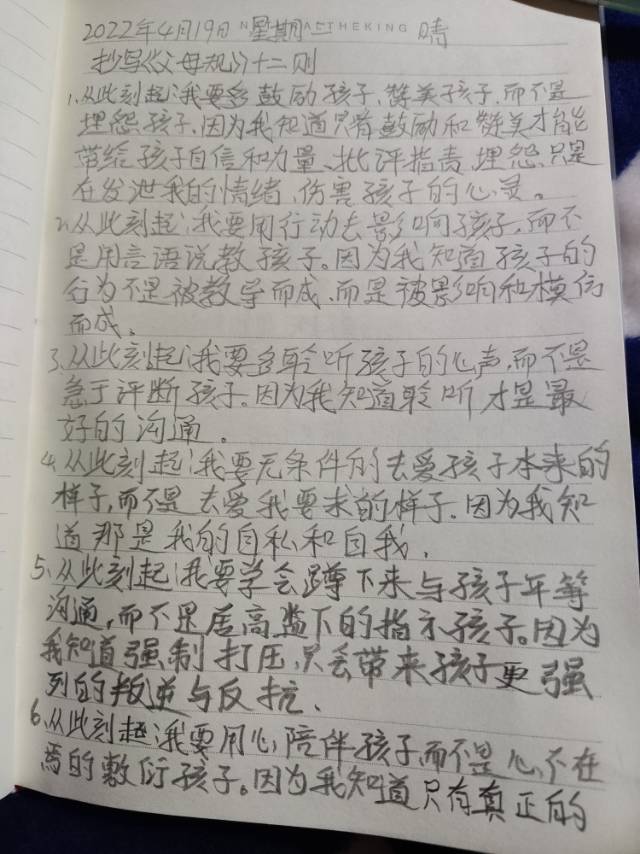 2022年4月19日 星期二 N A THEKING 晴
抄写《父母规》十二则
1、从此刻起:我要多鼓励孩子、赞美孩子、而不是
埋怨孩子,因为我知道只有鼓励和赞美才能
带给孩子自信和力量、批评指责、埋怨、只是
在发泄我的情绪、伤害孩子的心灵。
2、从此刻起:我要用行动去影响孩子,而不
是用言语说教孩子。因为我知道孩子的
行为不是被教导而成、而是被影响和模仿
而成。
3、从此刻起:我要多聆听孩子的心声,而不是
急于评断孩子。因为我知道聆听才是最
好的沟通。
4、从此刻起:我要无条件的去爱孩子本来的
样子,而不是去爱我要求的样子。因为我知
道那是我的自私和自我。
5、从此刻起:我要学会蹲下来与孩子平等
沟通,而不是居高监下的指示孩子。因为
我知道强制打压,只会带来孩子更强
列的叛逆与反抗、
6、从此刻起:我要用心陪伴孩子,而不是心不在
焉的敷衍孩子。因为我知道只有真正的